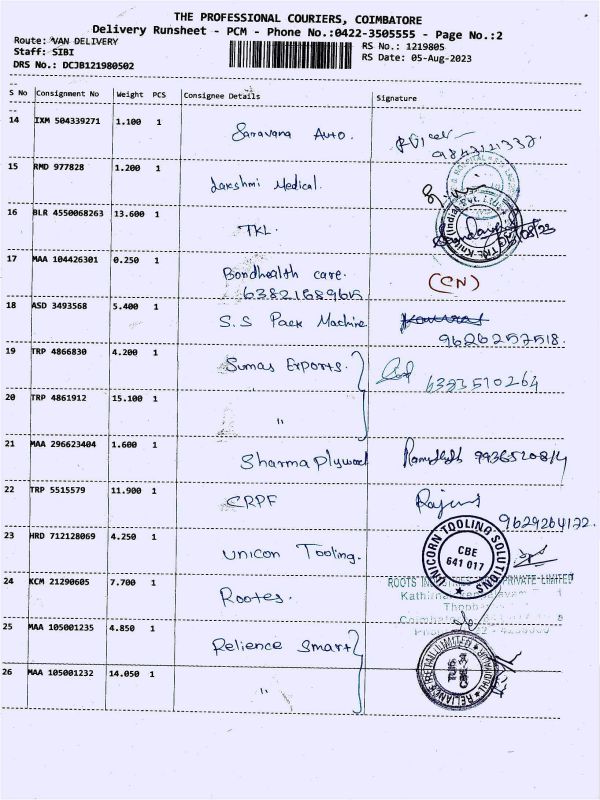 THE PROFESSIONAL COURIERS, COIMBATORE
Delivery Runsheet - PCM - Phone No.:0422-3505555 - Page No.:2
Route: VAN DELIVERY
Staff: SIBI
DRS No.: DCJB121980502
RS No.: 1219805
RS Date: 05-Aug-2023
S No Consignment No Weight PCS Consignee Details Signature
14 IXM 504339271 1.100 1 Saravana Auto.
15 RMD 977828 1.200 1 Lakshmi Medical.
16 BLR 4550068263 13.600 1 TKL.
05/08/23
17 MAA 104426301 0.250 1 Bondhealth care. (CN)
18 ASD 3493568 5.400 1 S.S Pack Machine
9626257518.
19 TRP 4866830 4.200 1 Sumas Exports.
6383510264
20 TRP 4861912 15.100 1 "
21 MAA 296623404 1.600 1 Sharma Plywood
22 TRP 5515579 11.900 1 CRPF
9629264122.
23 HRD 712128069 4.250 1 Unicon Tooling.
UNICORN TOOLING SOLUTIONS
CBE
641 017
24 KCM 21290605 7.700 1 Rootes.
ROOTS PRIVATE LIMITED
25 MAA 105001235 4.850 1 Relience Smart
RELIANCE RETAIL LIMITED
26 MAA 105001232 14.050 1 "